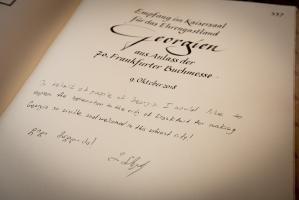 337
Empfang im Kaisersaal
für das Ehrengastland
Georgien
aus Anlass der
70. Frankfurter Buchmesse
9. Oktober 2018
In behalf of people of Georgia I would like to
express the appreciation to the city of Frankfurt for making
Georgia so visible and welcomed in the vibrant city!